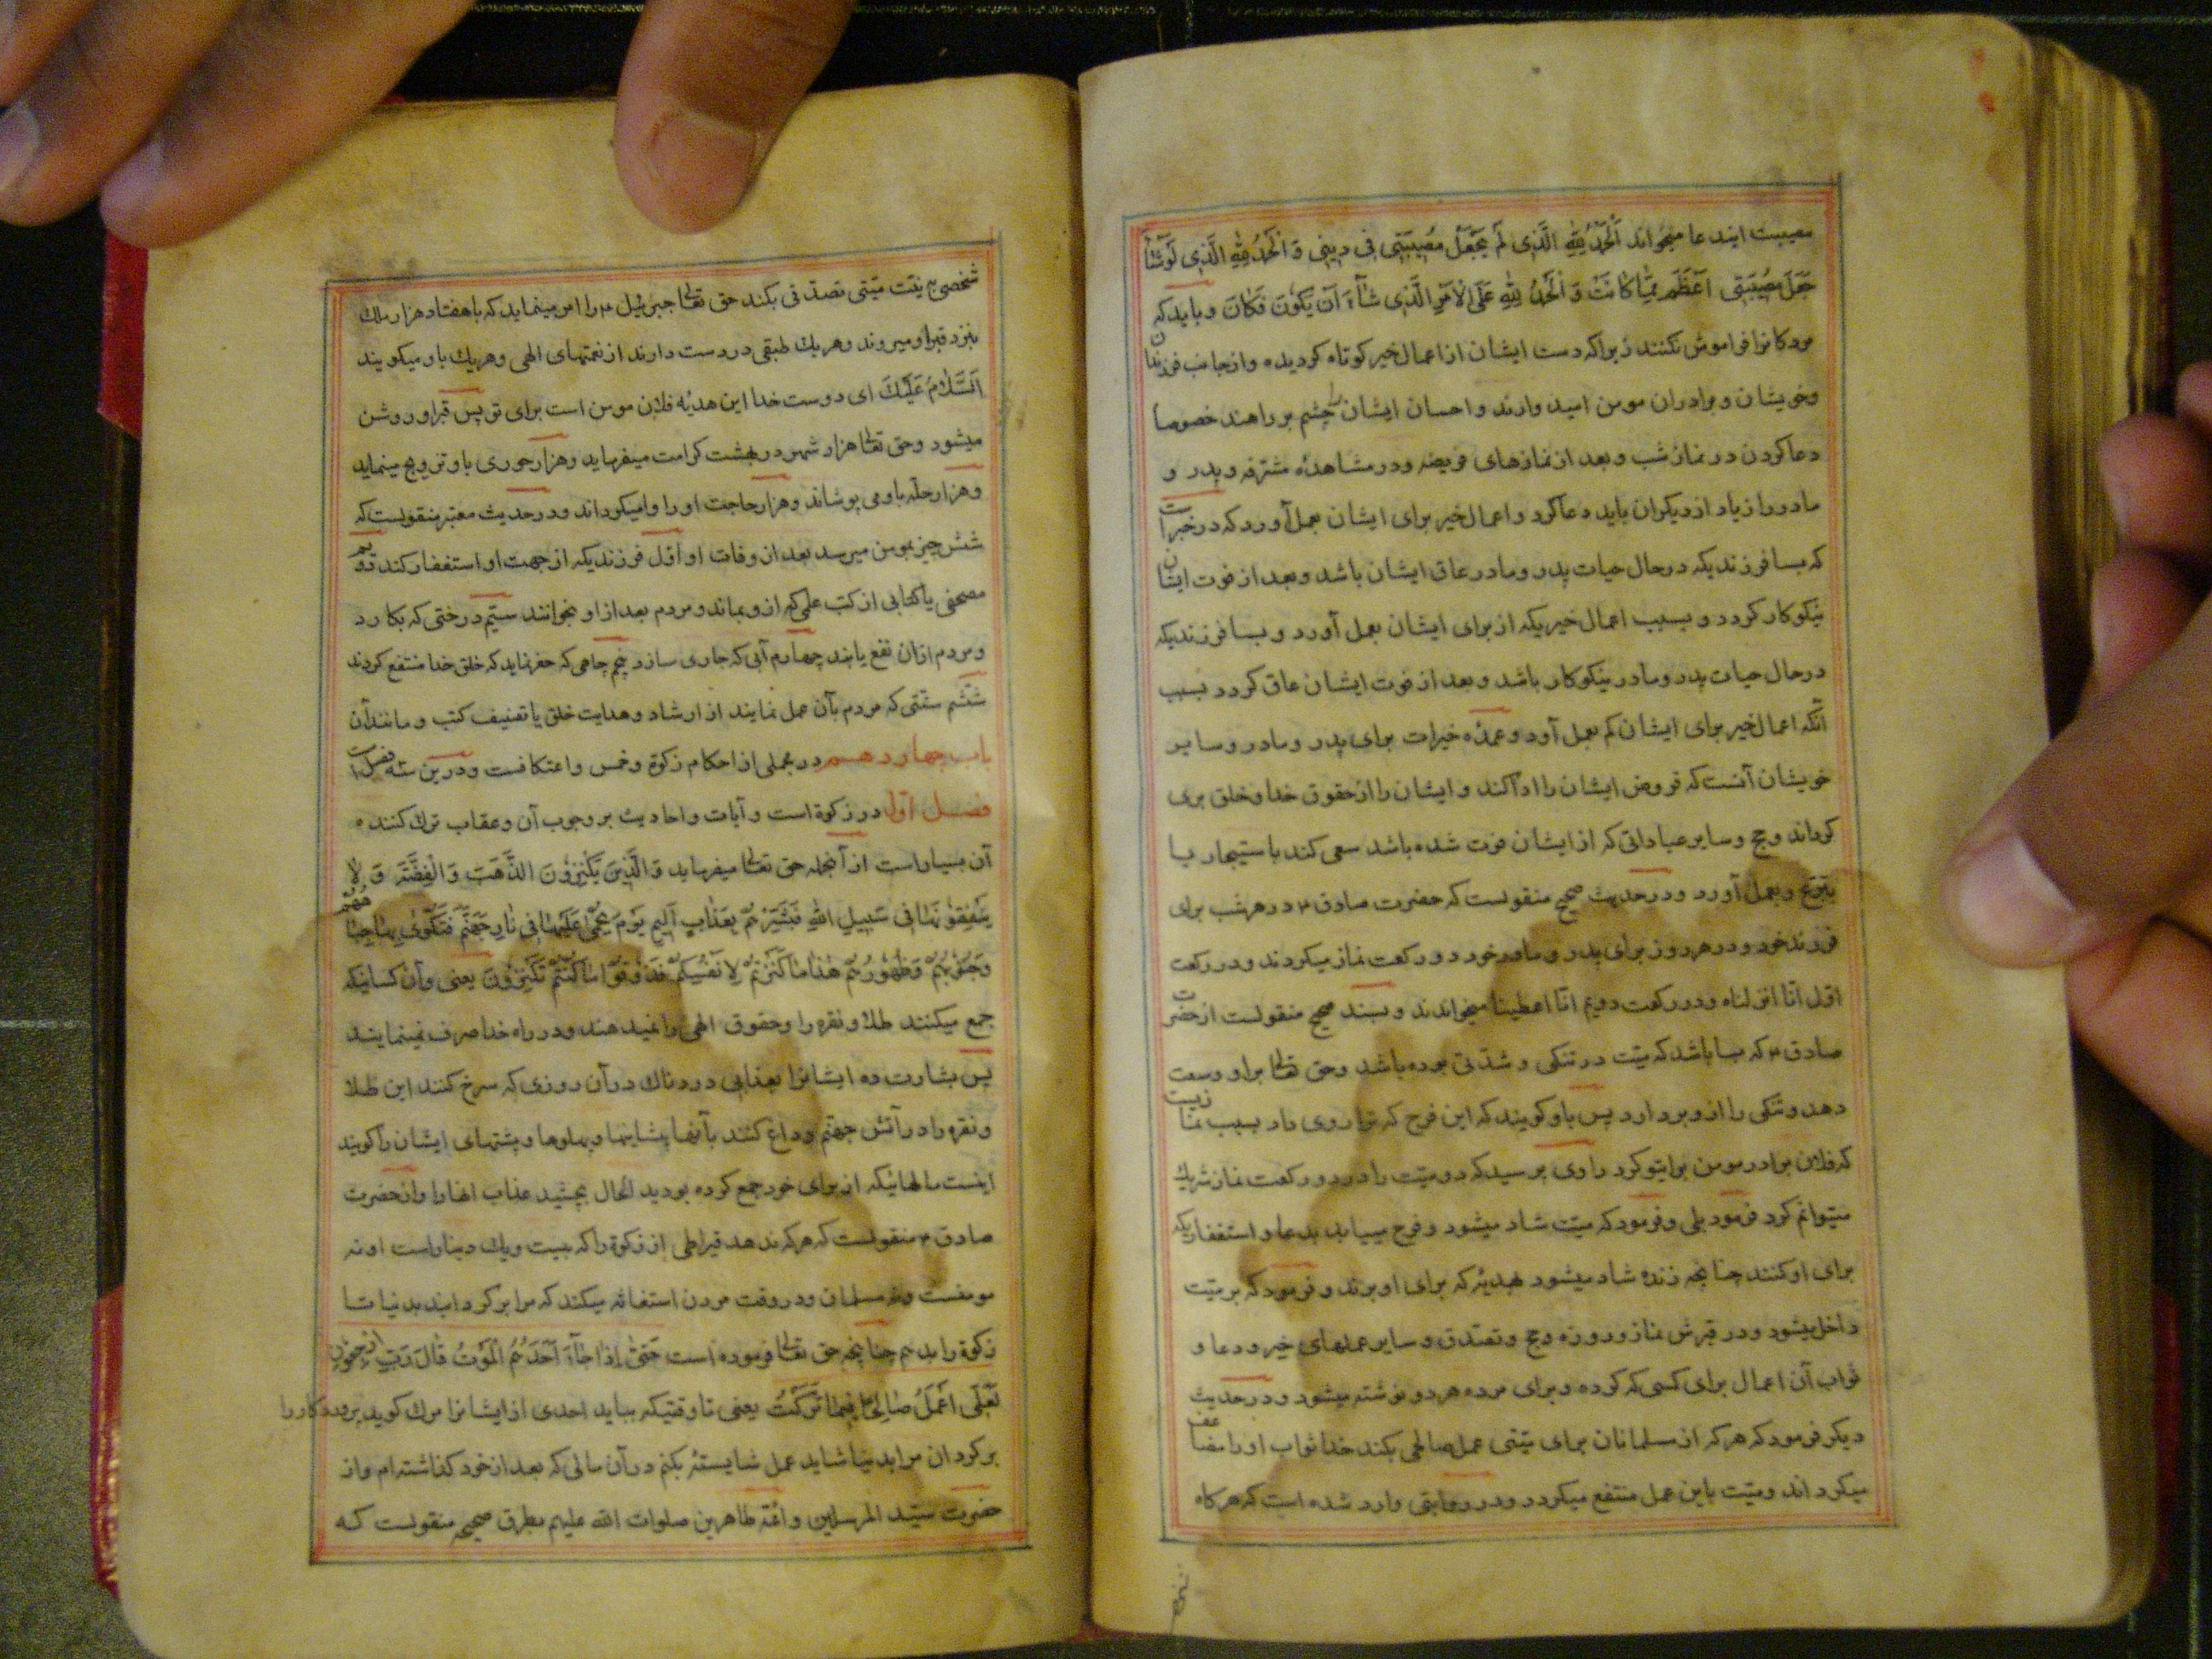 مصیبت ایند عا میخواند اَلْحَمْدُ لِلّٰهِ الَّذِی لَمْ یَجْعَلْ مُصِیبَتِی فِی دِینِی وَ الْحَمْدُ لِلّٰهِ الَّذِی لَوْ شَآءَ
جَعَلَ مُصِیبَتِی اَعْظَمَ مِمَّا کَانَتْ وَ الْحَمْدُ لِلّٰهِ عَلَی الْاَمْرِ الَّذِی شَآءَ اَنْ یَکُونَ فَکَانَ و باید که
مردکانرا فراموش نکنند زیرا که دست ایشان از اعمال خیر کوتاه کردیده و از جانب فرزندان
و خویشان و برادران مومن امید وارند و احسان ایشان را چشم بر راهند خصوصا
دعا کردن در نماز شب و بعد از نمازهای فریضه و در مشاهده مشرفه و پدر و
مادر را زیاد از دیکران باید دعا کرد و اعمال خیر برای ایشان بعمل آورد که در خبر است
که بسا فرزندیکه در حال حیات پدر و مادر عاق ایشان باشد و بعد از فوت ایشان
نیکو کار کردد و بسبب اعمال خیریکه از برای ایشان بعمل آورد و بسا فرزندیکه
در حال حیات پدر و مادر نیکو کار باشد و بعد از فوت ایشان عاق کردد بسبب
آنکه اعمال خیر برای ایشان کم بعمل آورد و عمده خیرات برای پدر و مادر و سایر
خویشان آنست که قروض ایشان را ادا کند و ایشان را از حقوق خدا و خلق بری
کرداند و حج و سایر عباداتی که از ایشان فوت شده باشد سعی کند باستیجار یا
بتبرع و بعمل آورد و در حدیث صحیح منقولست که حضرت صادق ۴ در هر شب برای
فرزند خود و در هر روز برای پدر و مادر خود دو رکعت نماز میکردند و در رکعت
اول انّا انزلناه و در رکعت دویم انّا اعطینا میخواندند و بسند صحیح منقولست از حضرت
صادق ۴ که بسا باشد که میّت در تنکی و شدّتی بوده باشد و حق تعالی براو وسعت
دهد و تنکی را از و بردارد پس باو کویند که این فرح که ترا روی داد بسبب نمازیست
که فلان برادر مومن برایتو کرد راوی پرسید که دو میّت را در دو رکعت نماز شریک
میتوانم کرد فرمود بلی و فرمود که میّت شاد میشود و فرح مییابد بدعا و استغفاریکه
برای او کنند چنانچه زنده شاد میشود بهدیّه که برای او برند و فرمود که بر میّت
داخل میشود در قبرش نماز و روزه و حج و تصدق و سایر عملهای خیر و دعا و
ثواب آن اعمال برای کسی که کرده و برای مرده هر دو نوشته میشود و در حدیث
دیکر فرمود که هر که از مسلمانان برای میّتی عمل صالحی بکند خدا ثواب او را مضاعف
میکرداند و میّت باین عمل منتفع میکردد و در روایتی وارد شده است که هرکاه
شخصی به نیّت میّتی تصدّقی بکند حق تعالی جبرئیل ۴ را امر مینماید که با هفتاد هزار ملک
بنزد قبر او میروند و هر یک طبقی در دست دارند از نعمتهای الهی و هر یک باو میکویند
اَلسَّلَامُ عَلَیْکَ ای دوست خدا این هدیّه فلان مومن است برای تو پس قبر او روشن
میشود و حق تعالی هزار شهر در بهشت کرامت میفرماید و هزار حوری باو تزویج مینماید
و هزار حلّه باو می پوشاند و هزار حاجت او را روا میکرداند و در حدیث معتبر منقولست که
شش چیز بمومن میرسد بعد از وفات او اوّل فرزندیکه از جهت او استغفار کند دویم
مصحفی یا کتابی از کتب علمی که از و بماند و مردم بعد از او بخوانند سیّم درختی که بکارد
و مردم ازان نفع یابند چهارم آبی که جاری سازد پنجم چاهی که حفر نماید که خلق خدا منتفع کردند
ششم سنّتی که مردم بآن عمل نمایند از ارشاد و هدایت خلق یا تصنیف کتب و مانند آن
باب چهاردهم در مجملی از احکام زکوة و خمس و اعتکافست و درین سه فصل است
فصل اول در زکوة است و آیات و احادیث بر وجوب آن و عقاب ترک کننده
آن بسیار است از آنجمله حق تعالی میفرماید وَ الَّذِینَ یَکْنِزُونَ الذَّهَبَ وَ الْفِضَّةَ وَ لَا
یُنْفِقُونَهَا فِی سَبِیلِ اللّٰهِ فَبَشِّرْهُمْ بِعَذَابٍ اَلِیمٍ یَوْمَ یُحْمٰی عَلَیْهَا فِی نَارِ جَهَنَّمَ فَتُکْوٰی بِهَا جِبَاهُهُمْ
وَ جُنُوبُهُمْ وَ ظُهُورُهُمْ هٰذَا مَا کَنَزْتُمْ لِاَنْفُسِکُمْ فَذُوقُوا مَا کُنْتُمْ تَکْنِزُونَ یعنی و آن کسانیکه
جمع میکنند طلا و نقره را و حقوق الهی را نمیدهند و در راه خدا صرف نمینمایند
پس بشارت ده ایشانرا بعذابی دردناک در آن روزی که سرخ کنند این طلا
و نقره را در آتش جهنّم و داغ کنند بآنها پیشانیها و پهلوها و پشتهای ایشان را کویند
اینست مالهائیکه از برای خود جمع کرده بودید الحال بچشید عذاب انها را و از حضرت
صادق ۴ منقولست که هر که ندهد قیراطی از زکوة را که بیست و یک دینار است او نه
مومنست و نه مسلمان و در وقت مردن استغاثه میکند که مرا برکردانید بدنیا تا
زکوة را بدهم چنانچه حق تعالی فرموده است حَتّٰی اِذَا جَآءَ اَحَدَهُمُ الْمَوْتُ قَالَ رَبِّ ارْجِعُونِ
لَعَلِّی اَعْمَلُ صَالِحًا فِیمَا تَرَکْتُ یعنی تا وقتیکه بیاید احدی از ایشانرا مرک کوید پروردکار را
برکردان مرا بدنیا شاید عمل شایسته بکنم در آن مالی که بعد از خود کذاشته ام و از
حضرت سیّد المرسلین و ائمّه طاهرین صلوات الله علیهم بطرق صحیحه منقولست که